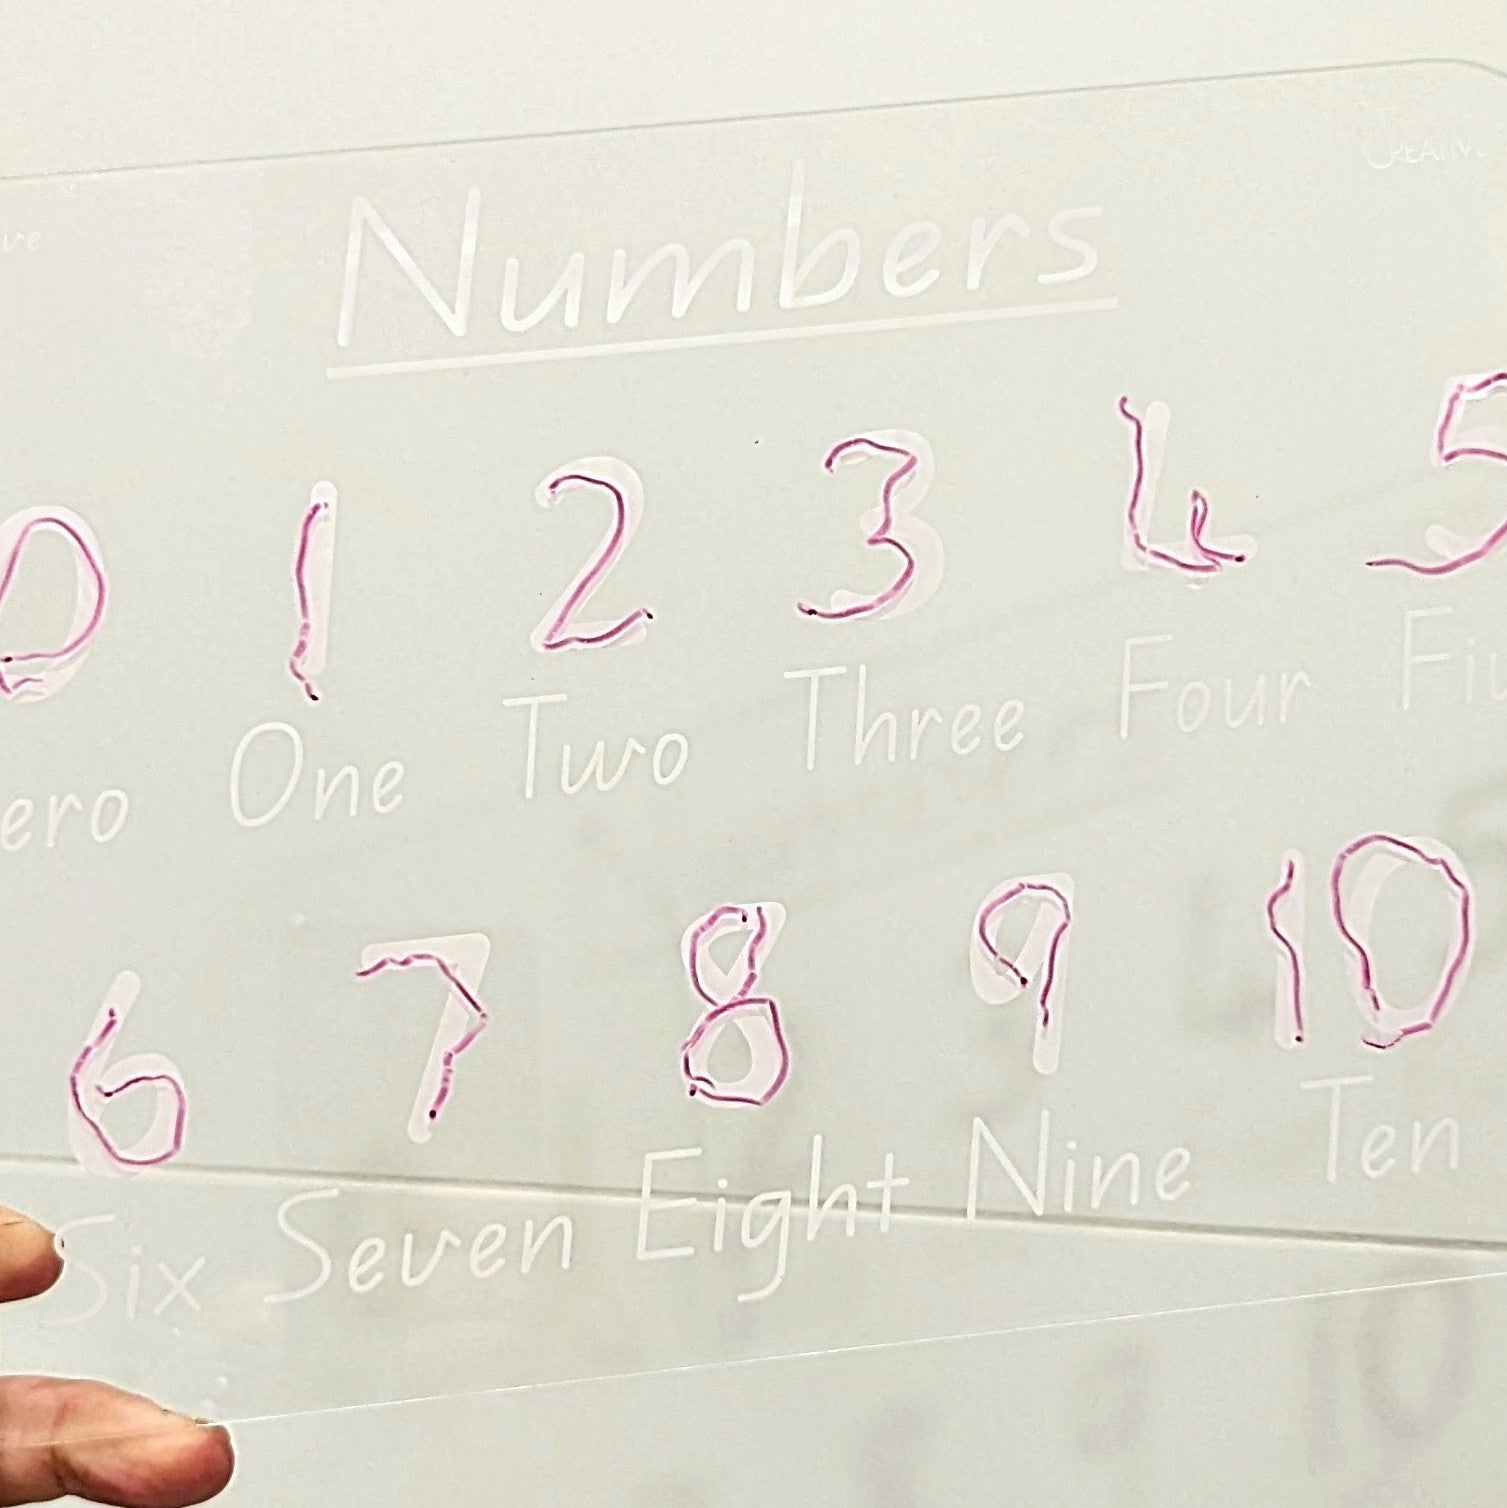 Numbers
0 1 2 3 4 5
ero One Two Three Four Fiv
6 7 8 9 10
Six Seven Eight Nine Ten